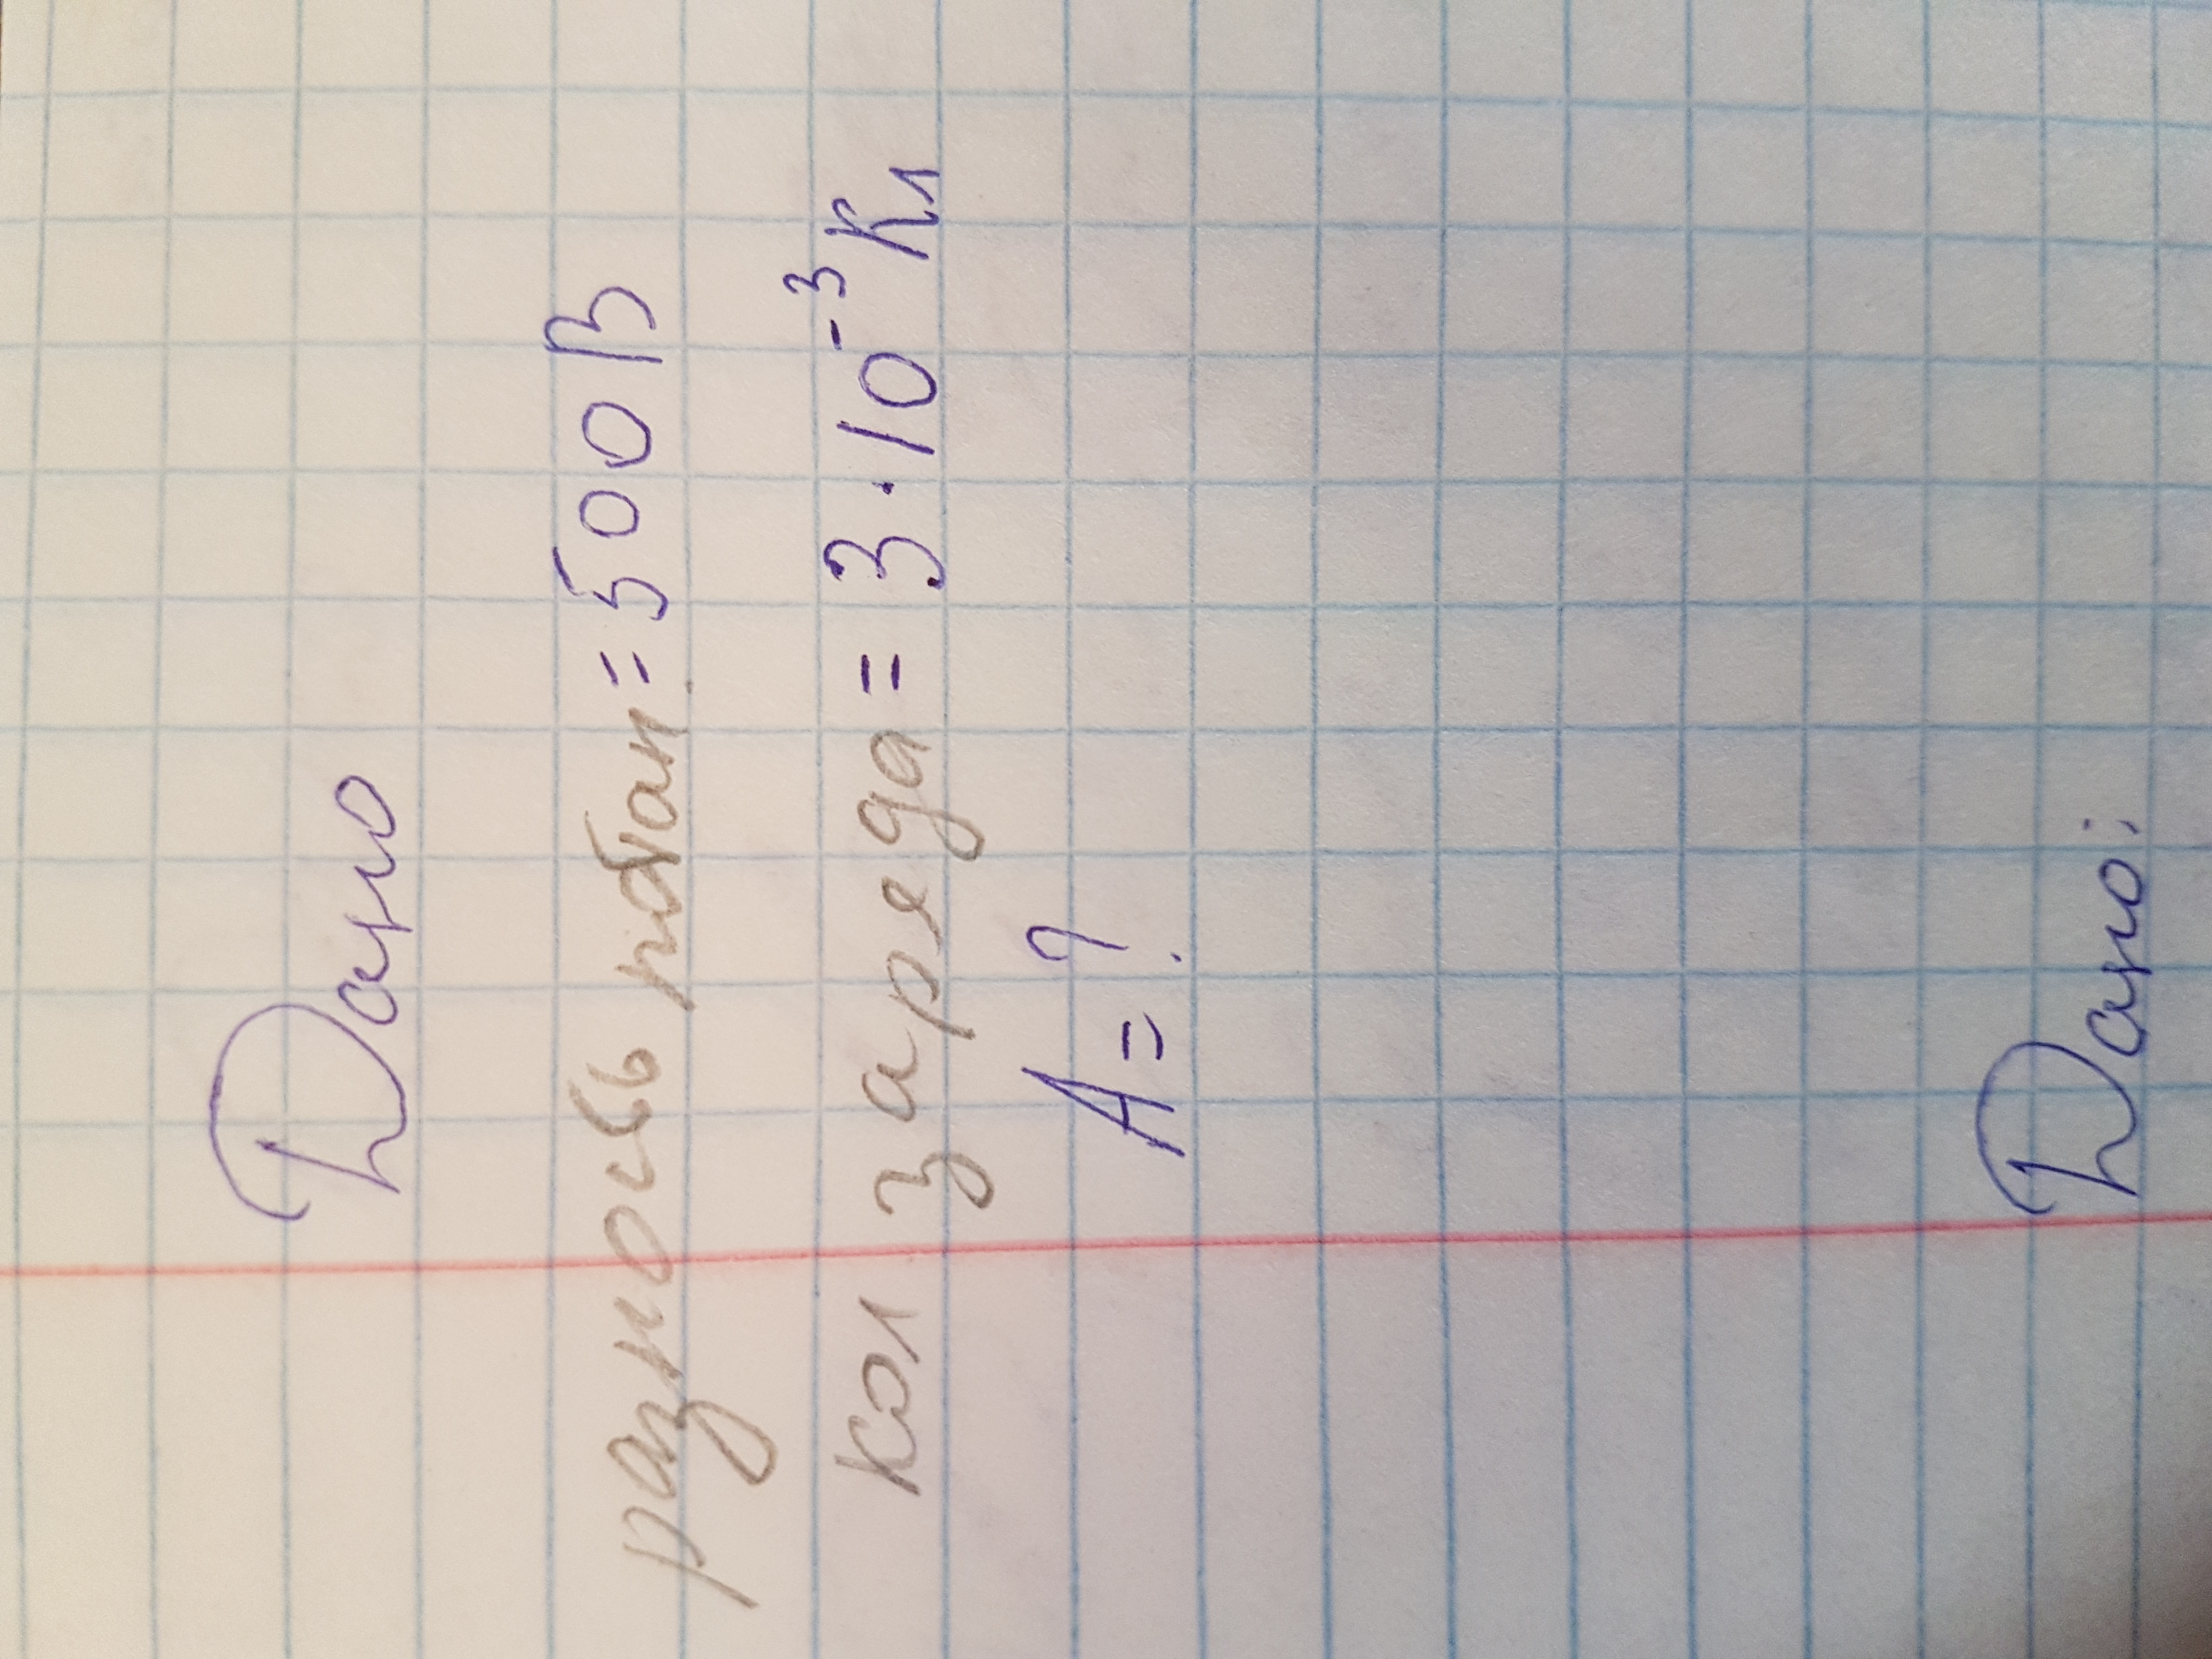 Дано
разность = 500В
кол заряда = 3·10⁻³Кл
A=?
Дано: